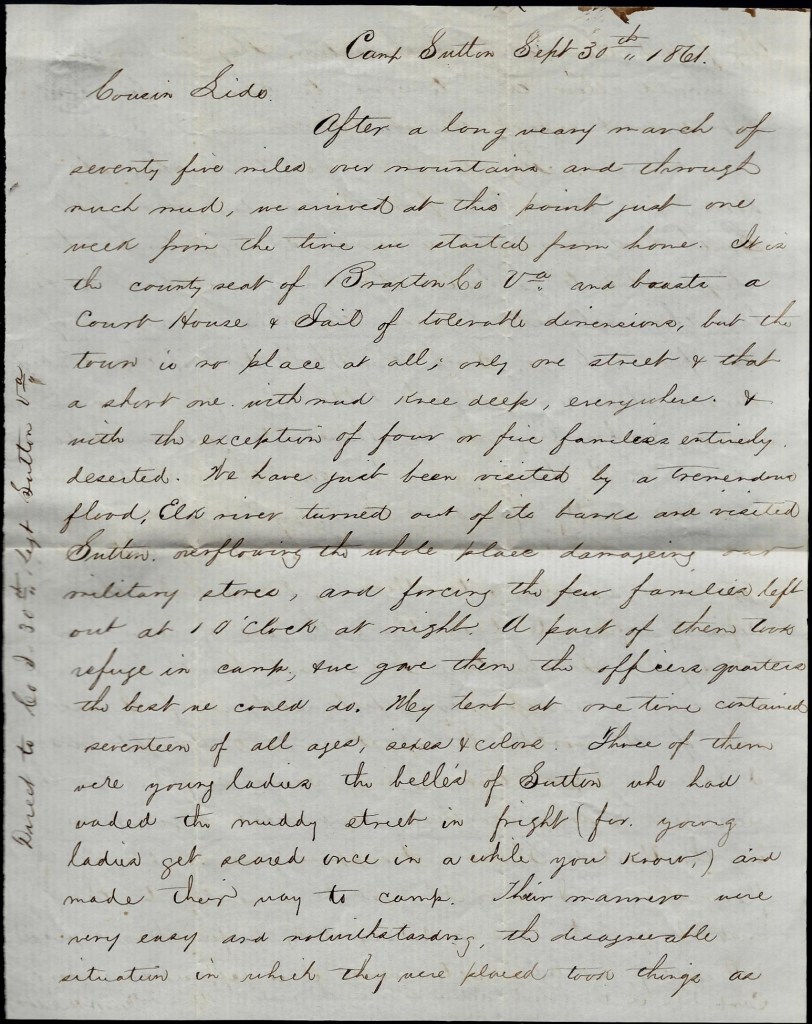 Camp Sutton Sept 30th " 1861.
Cousin Lide.
After a long weary march of
seventy five miles over mountains and through
much mud, we arrived at this point just one
week from the time we started from home. It is
the county seat of Braxton Co Va. and boasts a
Court House & Jail of tolerable dimensions, but the
town is no place at all; only one street & that
a short one. with mud knee deep, everywhere. &
with the exception of four or five families entirely
deserted. We have just been visited by a tremendous
flood, Elk river turned out of its banks and visited
Sutton. overflowing the whole place damageing our
military stores, and forcing the few families left
out at 10 O'Clock at night. A part of them took
refuge in camp, & we gave them the officers quarters
the best we could do. My tent at one time contained
seventeen of all ages, sexes & colors. Three of them
were young ladies the belle's of Sutton who had
waded the muddy street in fright (for. young
ladies get scared once in a while you know,) and
made their way to camp. Their manners were
very easy and notwithstanding, the disagreeable
situation in which they were placed took things as
Direct to Co I. 30th Regt Sutton Va